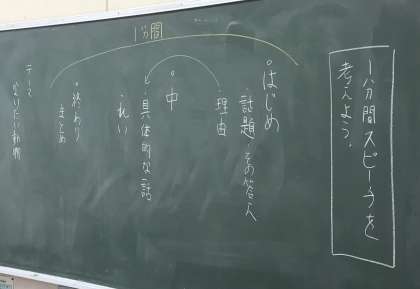 1分間スピーチを
考えよう。
1分間
はじめ
話題・その答え
・理由
中
・具体的な話
終わり
まとめ
テーマ